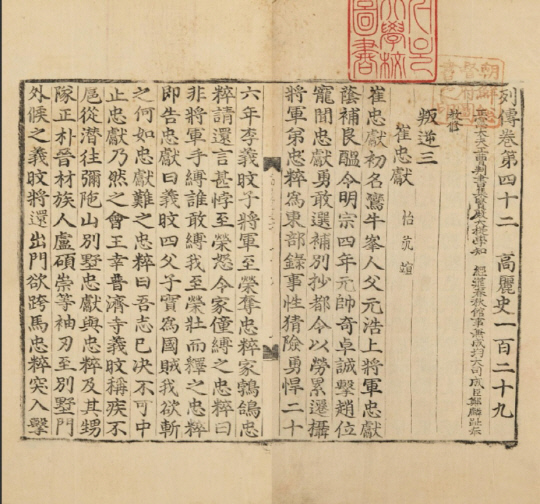 列傳卷第四十二　高麗史一百二十九
正憲大夫工曹判書集賢殿大提學知　經筵春秋館事兼成均大司成臣鄭麟趾奉
教修
叛逆三
崔忠獻　怡　沆　竩
崔忠獻初名鸞牛峯人父元浩上將軍忠獻
蔭補良醞令明宗四年元帥奇卓誠擊趙位
寵聞忠獻勇敢選補別抄都令以勞累遷攝
將軍弟忠粹為東部錄事性猜險勇悍二十
六年李義旼子將軍至榮奪忠粹家鵓鴿忠
粹請還言甚悖至榮怒令家僮縛之忠粹曰
非將軍手縛誰敢縛我至榮壯而釋之忠粹
即告忠獻曰義旼四父子實為國賊我欲斬
之何如忠獻難之忠粹曰吾志已決不可中
止忠獻乃然之會王幸普濟寺義旼稱疾不
扈從潛往彌陁山別墅忠獻與忠粹及其甥
隊正朴晉材族人盧碩崇等袖刃至別墅門
外候之義旼將還出門欲跨馬忠粹突入擊